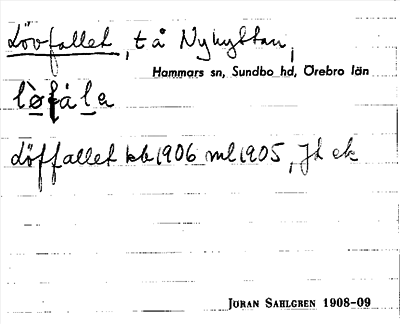 Lövfallet, t å Nyhyttan,
Hammars sn, Sundbo hd, Örebro län
lø̀fála
Löffallet kb 1906 ml 1905, Jd ek
JÖRAN SAHLGREN 1908-09